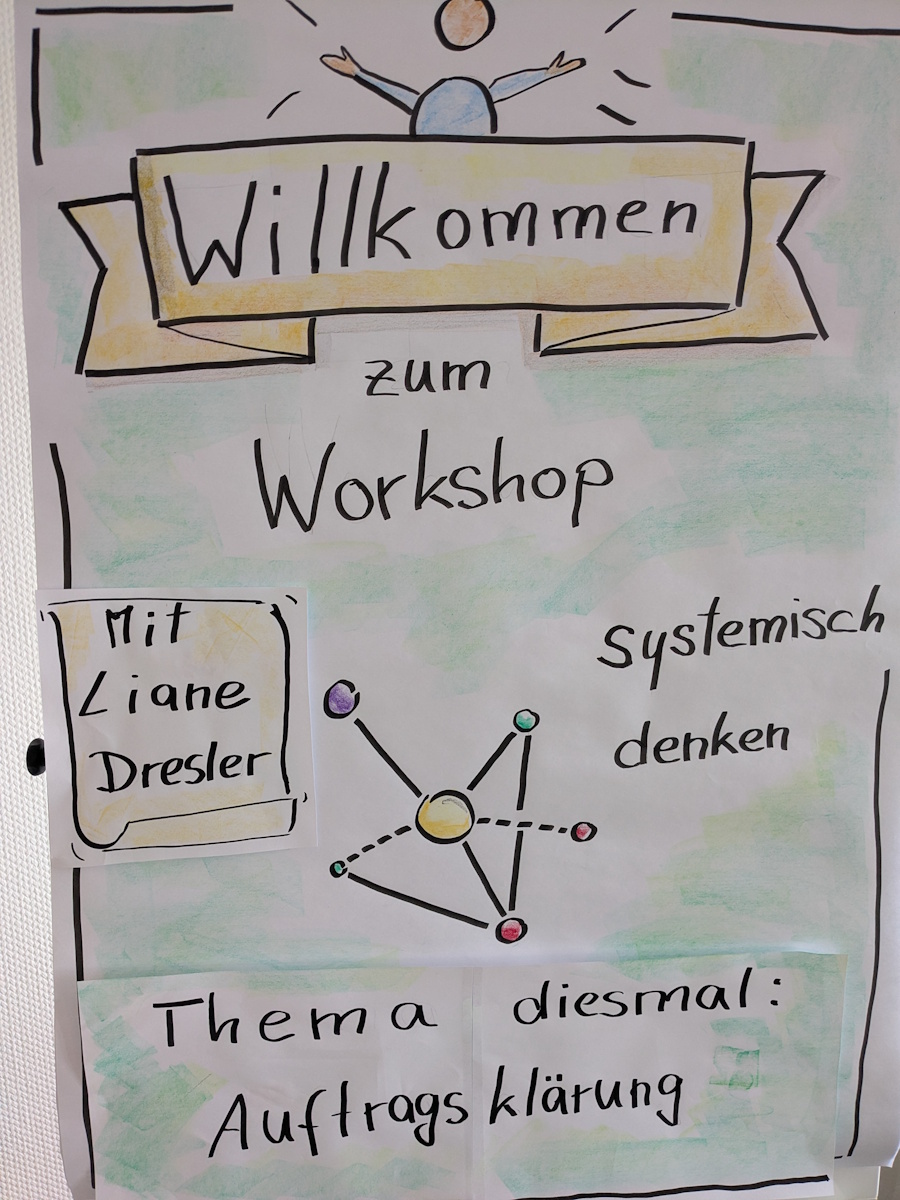 Willkommen
zum
Workshop
systemisch
denken
Mit
Liane
Dresler
Thema diesmal:
Auftragsklärung